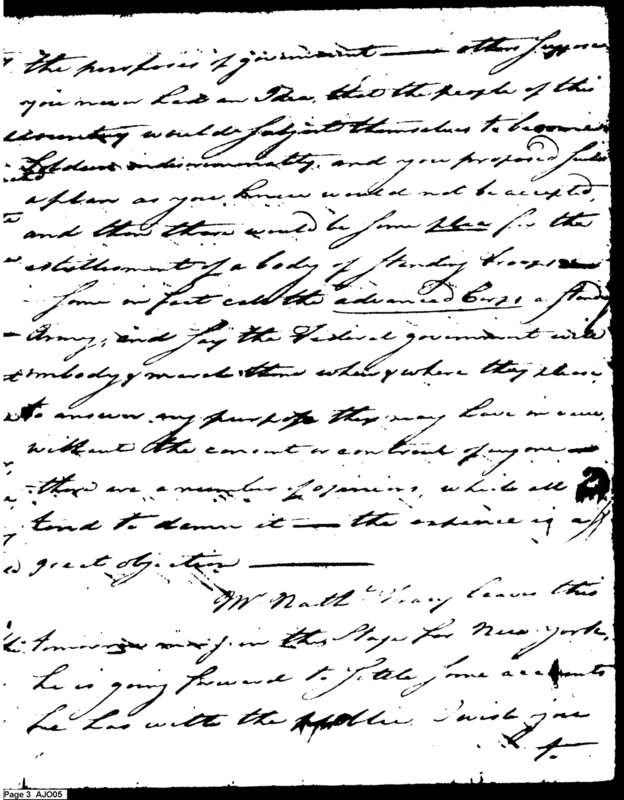 the purposes of goverment — others suppose
you never had an Idea, that the people of this
country would subject themselves to become
Soldiers indiscriminately, and you proposed such
a plan as you knew would not be accepted,
and then there would be some plea for the
establishment of a body of standing troops —
some in fact call the advanced Corps a standg
Army, and say the Federal government will
embody & march them when & where they please,
to answer any purpose they may have in view,
without the consent or controul of anyone —
there are a number of opinions, which all
tend to damn it — the expence is a
great objection —
Mr Nathl Tracy leaves this
tomorrow morng in the Stage for New York,
he is going forward to settle some accounts
he has with the public I wish you
to
Page 3 AJO05